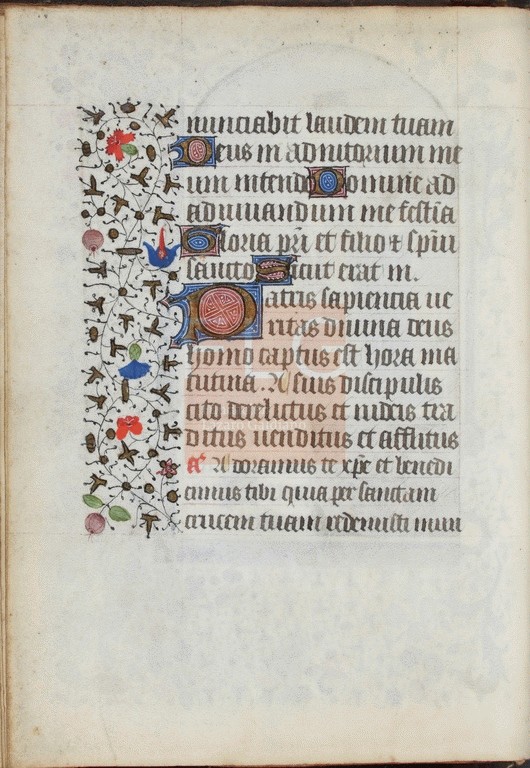 nunciabit laudem tuam
Deus in adiutorium me
um intende Domine ad
adiuuandum me festia
Gloria pri et filio & spiu
sancto Sicut erat in.
Patris sapiencia ue
ritas diuina deus
homo captus est hora ma
tutina. A suis discipulis
cito derelictus et iudeis tra
ditus uenditus et afflitus
Adoramus te xpe et benedi
cimus tibi quia per sanctam
crucem tuam redemisti mun
LG